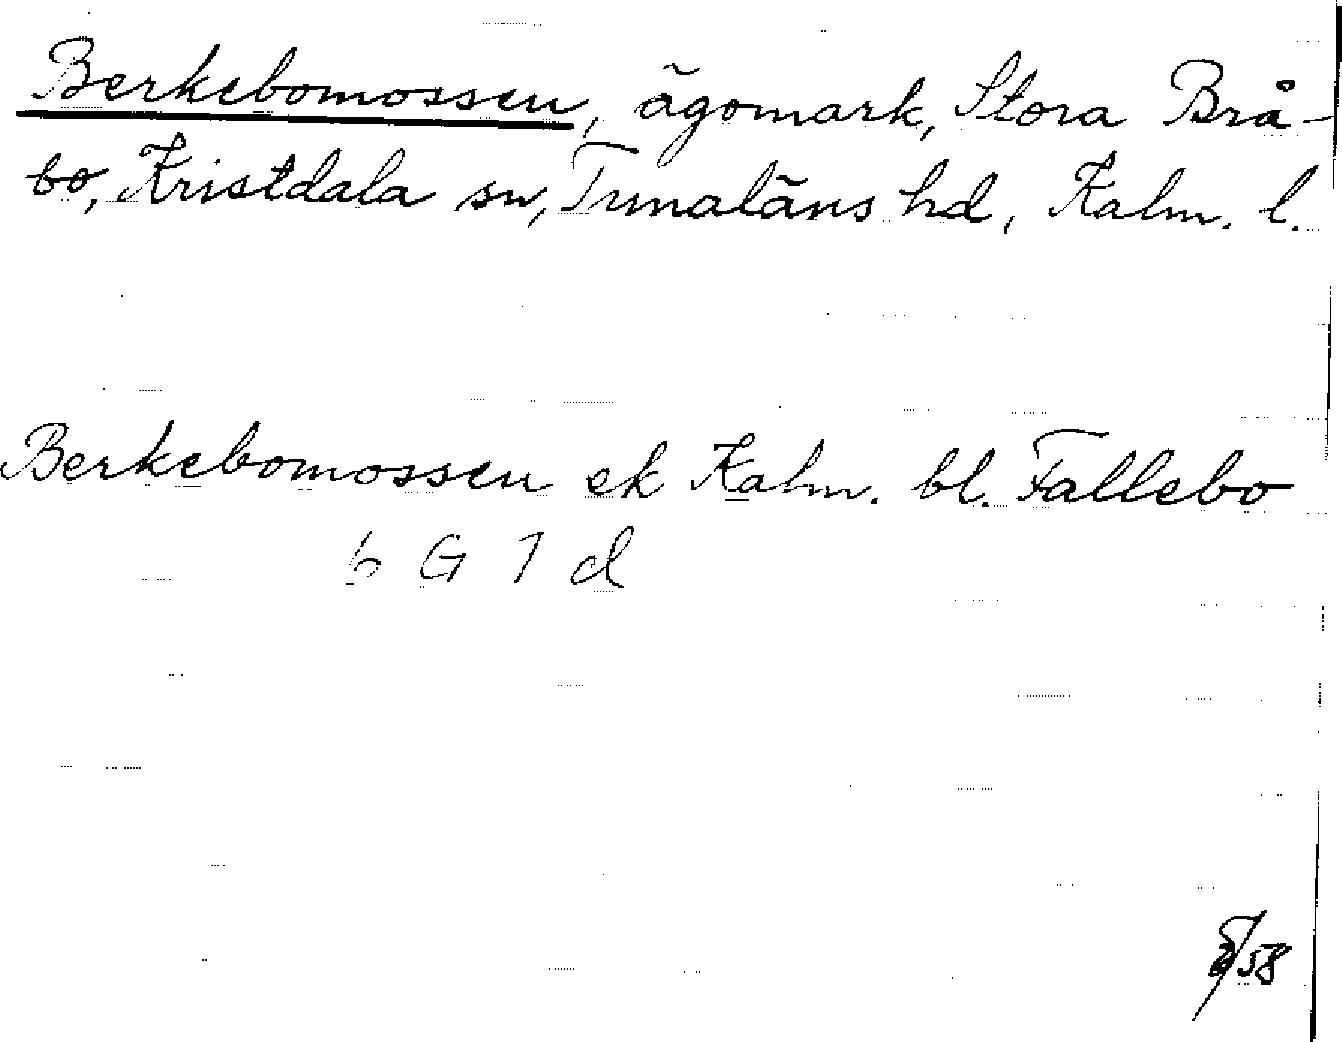 Berkebomossen, ägomark, Stora Brå-
bo, Kristdala sn, Tunaläns hd, Kalm. l.
Berkebomossen ek Kalm. bl. Fallebo
6 G 7 d
/58